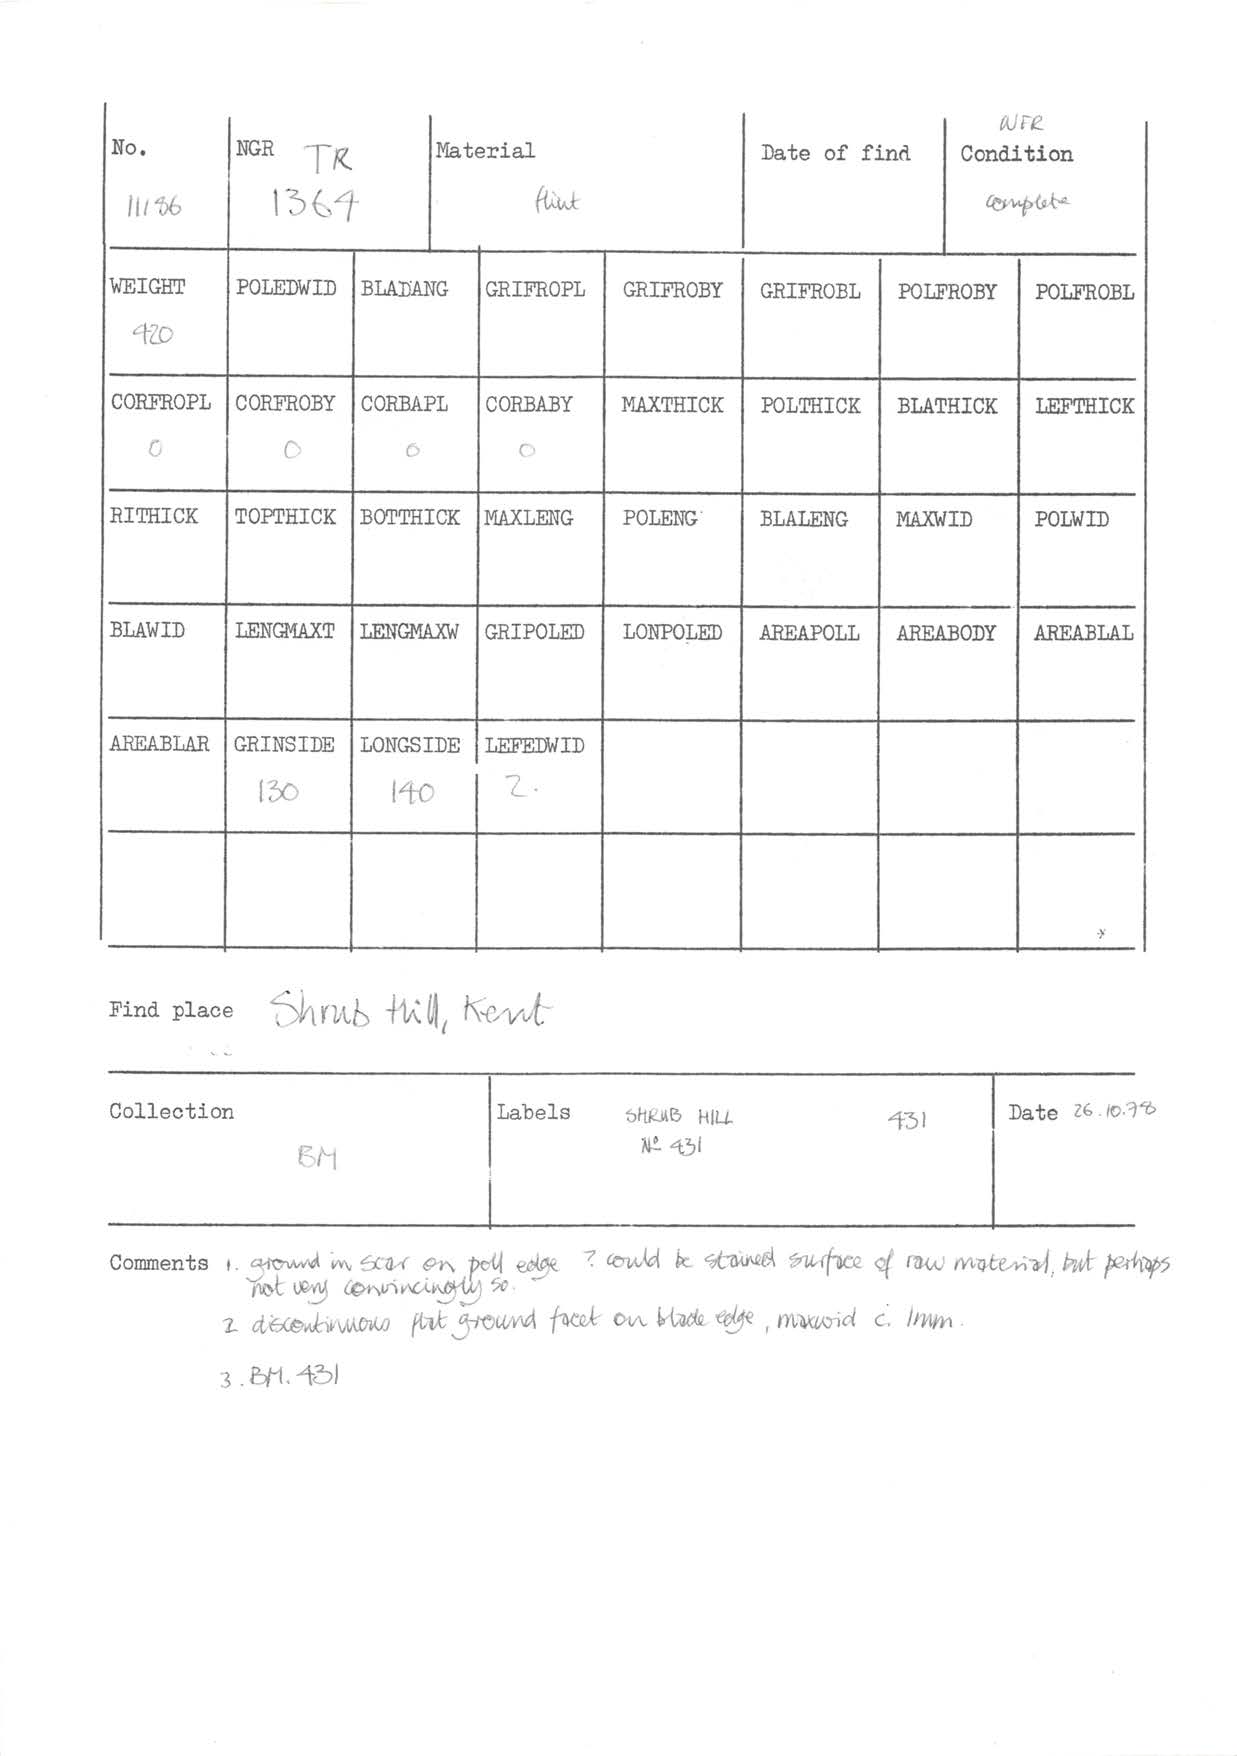 WFR
No. NGR TR Material Date of find Condition
11186 1364 flint complete
WEIGHT POLEDWID BLADANG GRIFROPL GRIFROBY GRIFROBL POLFROBY POLFROBL
420
CORFROPL CORFROBY CORBAPL CORBABY MAXTHICK POLTHICK BLATHICK LEFTHICK
0 0 0 0
RITHICK TOPTHICK BOTTHICK MAXLENG POLENG BLALENG MAXWID POLWID
BLAWID LENGMAXT LENGMAXW GRIPOLED LONPOLED AREAPOLL AREABODY AREABLAL
AREABLAR GRINSIDE LONGSIDE LEFEDWID
130 140 2.
Find place Shrub Hill, Kent
Collection Labels SHRUB HILL 431 Date 26.10.78
BM No 431
Comments 1. ground in scar on poll edge ? could be stained surface of raw material, but perhaps
not very convincingly so.
2 discontinuous flat ground facet on blade edge, maxwid c. 1mm.
3. BM. 431